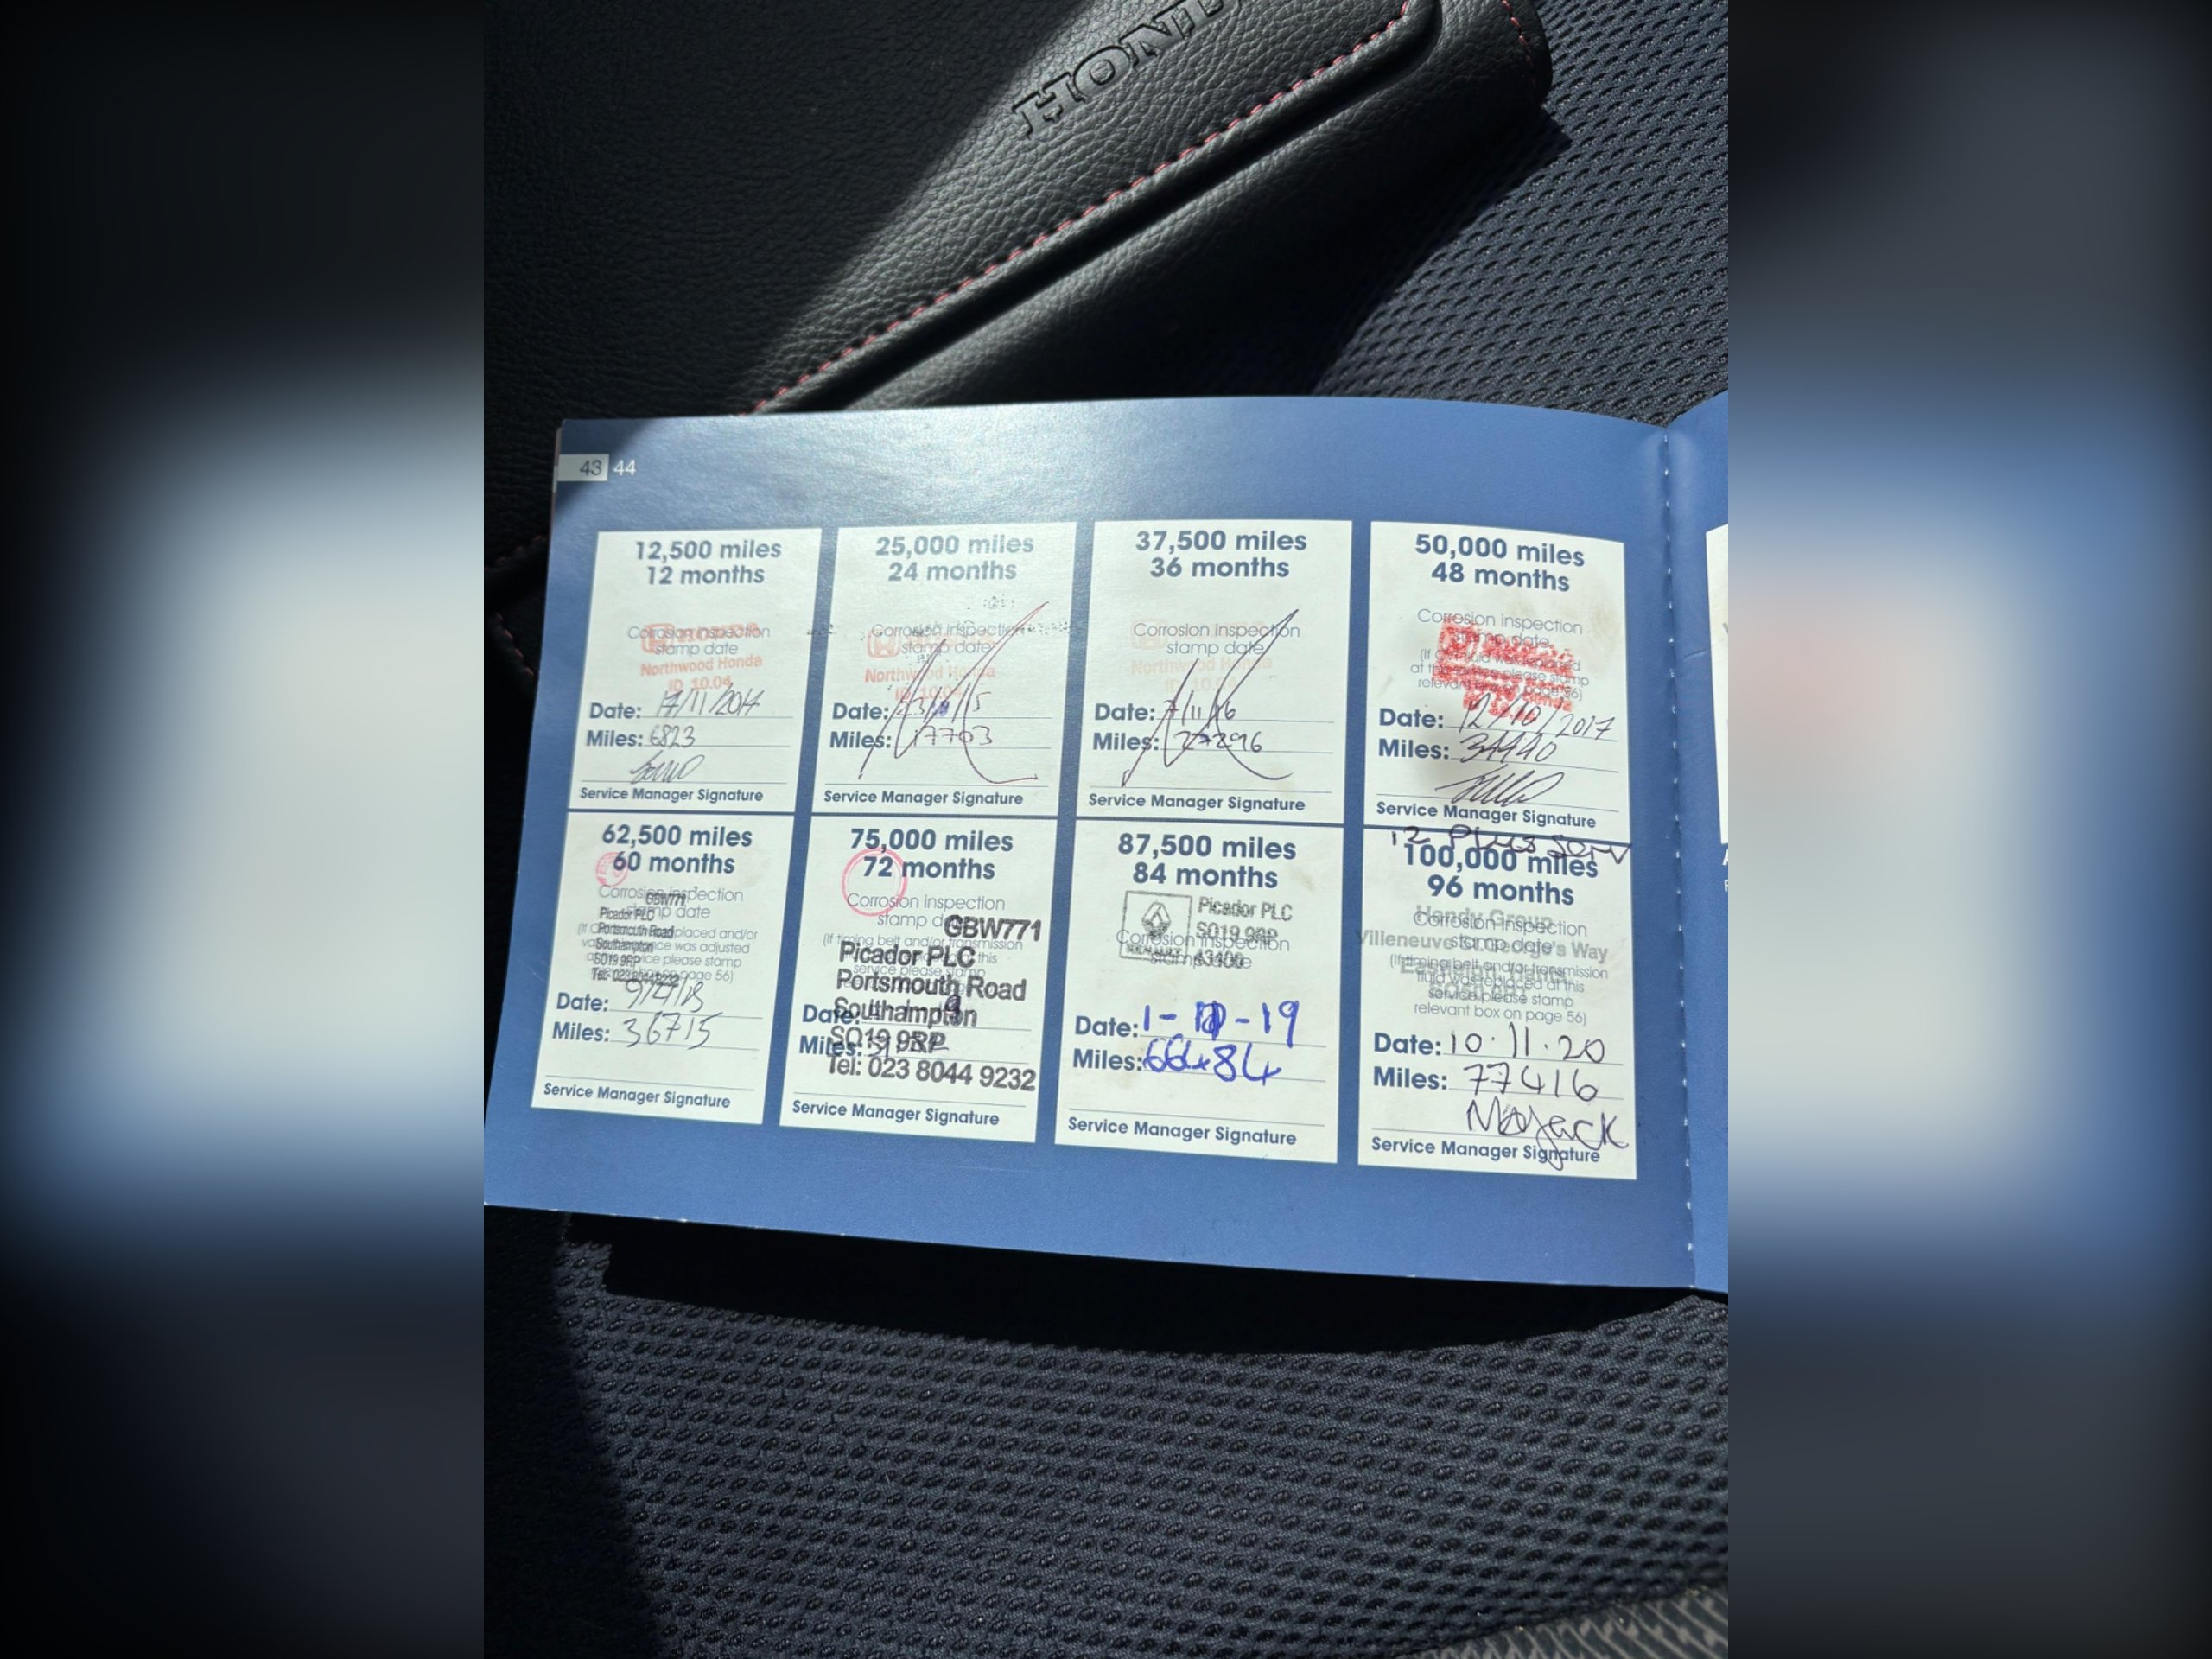 HOND
43 44
12,500 miles
12 months
Corrosion inspection
stamp date
Northwood Honda
ID 10.04
Date: 17/11/2014
Miles: 6823
Service Manager Signature
25,000 miles
24 months
Corrosion inspection
stamp date
Northwood Honda
ID 10.04
Date:
Miles: 17703
Service Manager Signature
37,500 miles
36 months
Corrosion inspection
stamp date
Northwood Honda
ID 10.04
Date: 7/11/16
Miles: 27296
Service Manager Signature
50,000 miles
48 months
Corrosion inspection
stamp date
relevant box on page 56)
Date: 12/10/2017
Miles: 34440
Service Manager Signature
62,500 miles
60 months
Corrosion inspection
stamp date
GBW771
Picador PLC
Portsmouth Road
Southampton
SO19 9RP
Tel: 023 80449232
Date:
Miles: 36715
Service Manager Signature
75,000 miles
72 months
Corrosion inspection
stamp date
GBW771
(If timing belt and/or transmission
Picador PLC
Portsmouth Road
Southampton
Date:
SO19 9RP
Miles:
Tel: 023 8044 9232
Service Manager Signature
87,500 miles
84 months
Picador PLC
SO19 9RP
43400
RENAULT
Corrosion inspection
stamp date
Date: 1-10-19
Miles: 66484
Service Manager Signature
12 Plus Serv
100,000 miles
96 months
Handy Group
Corrosion inspection
stamp date
Villeneuve St George's Way
Eastleigh, Hants
(If timing belt and/or transmission
fluid was replaced at this
service please stamp
relevant box on page 56)
Date: 10.11.20
Miles: 77416
Service Manager Signature